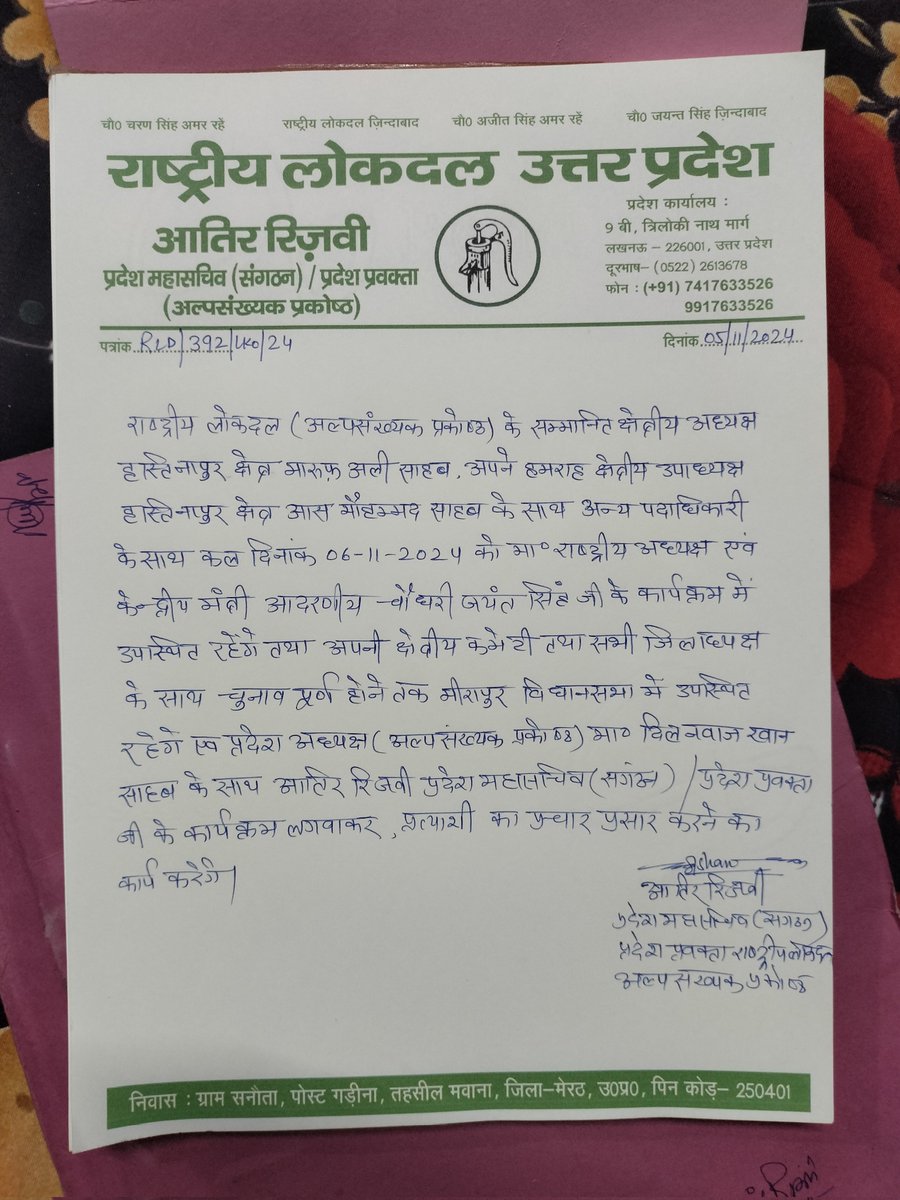 चौ0 चरण सिंह अमर रहें राष्ट्रीय लोकदल ज़िन्दाबाद चौ0 अजीत सिंह अमर रहें चौ0 जयन्त सिंह ज़िन्दाबाद
राष्ट्रीय लोकदल उत्तर प्रदेश
आतिर रिज़वी
प्रदेश महासचिव (संगठन) / प्रदेश प्रवक्ता
(अल्पसंख्यक प्रकोष्ठ)
प्रदेश कार्यालय :
9 बी, त्रिलोकी नाथ मार्ग
लखनऊ – 226001, उत्तर प्रदेश
दूरभाष– (0522) 2613678
फोन : (+91) 7417633526
9917633526
पत्रांक RLD/392/UKO/24 दिनांक 05/11/2024
राष्ट्रीय लोकदल (अल्पसंख्यक प्रकोष्ठ) के सम्मानित क्षेत्रीय अध्यक्ष
हास्तिनापुर क्षेत्र मारुफ़ अली साहब, अपने हमराह क्षेत्रीय उपाध्यक्ष
हास्तिनापुर क्षेत्र आस मौहम्मद साहब के साथ अन्य पदाधिकारी
के साथ कल दिनांक 06-11-2024 को मा० राष्ट्रीय अध्यक्ष एवं
केन्द्रीय मंत्री आदरणीय चौधरी जयंत सिंह जी के कार्यक्रम में
उपास्थित रहेंगे तथा अपनी क्षेत्रीय कमेटी तथा सभी जिलाध्यक्ष
के साथ चुनाव पूर्ण होने तक मीरापुर विधानसभा में उपस्थित
रहेगे एव प्रदेश अध्यक्ष (अल्पसंख्यक प्रकोष्ठ) मा० दिलनवाज खान
साहब के साथ आतिर रिजवी प्रदेश महासचिव (सगंठन) / प्रदेश प्रवक्ता
जी के कार्यक्रम लगवाकर, प्रत्याशी का प्रचार प्रसार करने का
कार्य करेगे।
आतिर रिजवी
प्रदेश महासचिव (सगठन)
प्रदेश प्रवक्ता राष्ट्रीय लोकदल
अल्पसख्यक प्रकोष्ठ
निवास : ग्राम सनौता, पोस्ट गड़ीना, तहसील मवाना, जिला-मेरठ, उ0प्र0, पिन कोड़- 250401